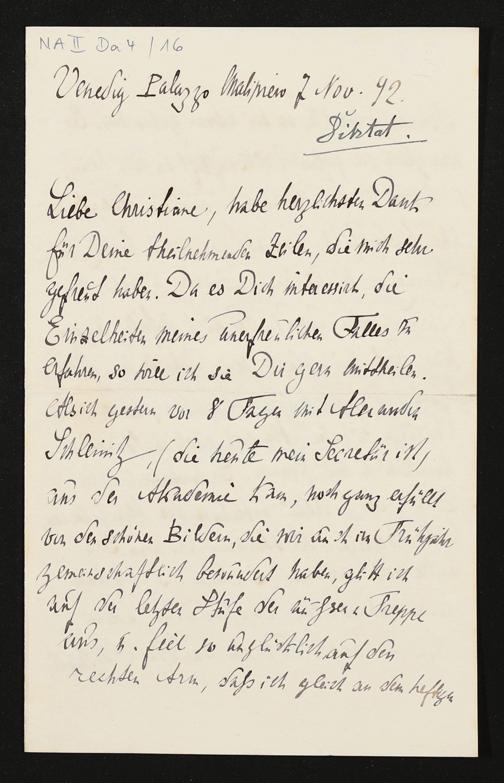 NA II Da 4 / 16
Venedig Palazzo Malipiero 7 Nov. 92.
Diktat.
Liebe Christiane, habe herzlichsten Dank
für Deine theilnehmenden Zeilen, die mich sehr
gefreut haben. Da es Dich interessirt, die
Einzelheiten meines unerfreulichen Falles zu
erfahren, so will ich sie Dir gern mittheilen.
Als ich gestern vor 8 Tagen mit Alexandra
Schleinitz, (die heute mein Secretär ist)
aus der Akademie kam, noch ganz erfüllt
von den schönen Bildern, die wir auch im Frühjahr
gemeinschaftlich bewundert haben, glitt ich
auf der letzten Stufe der äußeren Treppe
aus, u. fiel so unglücklich auf den
rechten Arm, daß ich gleich an dem heftigen